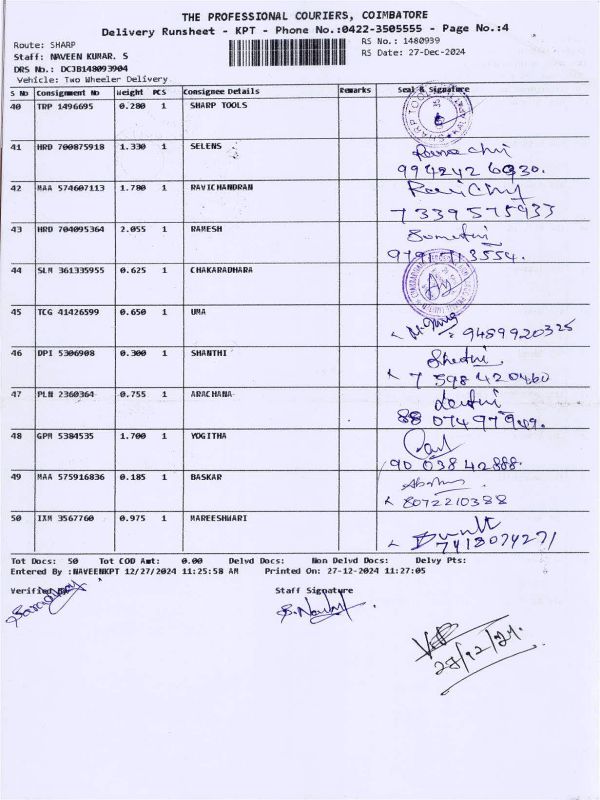 THE PROFESSIONAL COURIERS, COIMBATORE
Delivery Runsheet - KPT - Phone No.:0422-3505555 - Page No.:4
Route: SHARP
RS No.: 1480939
Staff: NAVEEN KUMAR. S
RS Date: 27-Dec-2024
DRS No.: DCJB148093904
Vehicle: Two Wheeler Delivery
S No Consignment No Weight PCS Consignee Details Remarks Seal & Signature
40 TRP 1496695 0.280 1 SHARP TOOLS
41 HRD 700875918 1.330 1 SELENS
42 MAA 574607113 1.780 1 RAVICHANDRAN
7339575933
43 HRD 704095364 2.055 1 RAMESH
9791713554.
44 SLM 361335955 0.625 1 CHAKARADHARA
45 TCG 41426599 0.650 1 UMA
9489920325
46 DPI 5306908 0.300 1 SHANTHI
7598420460
47 PLN 2360364 0.755 1 ARACHANA
48 GPM 5384535 1.700 1 YOGITHA
9003842888.
49 MAA 575916836 0.185 1 BASKAR
8072210388
50 IXM 3567760 0.975 1 MAREESHWARI
7418074271
Tot Docs: 50 Tot COD Amt: 0.00 Delvd Docs: Non Delvd Docs: Delvy Pts:
Entered By :NAVEENKPT 12/27/2024 11:25:58 AM Printed On: 27-12-2024 11:27:05
Verified Staff Signature